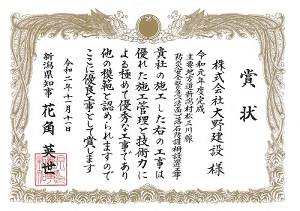 賞状
株式会社大野建設 様
令和元年度完成
主要地方道新潟村松三川線
防災安全緊急法面(落石防護柵設置)工事
貴社の施工した右の工事は
優れた施工管理と技術力に
よる極めて優秀な工事であり
他の模範と認められますので
ここに優良工事として賞します
令和二年十一月十一日
新潟県知事 花角英世